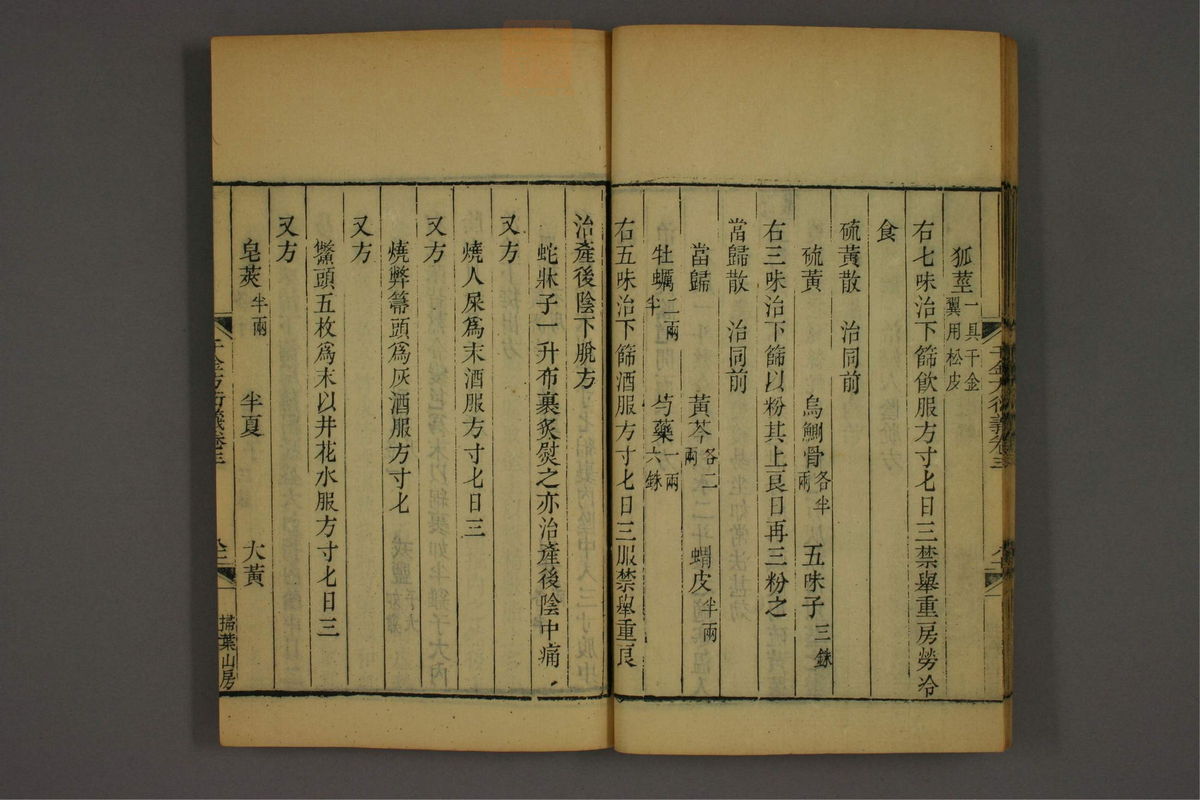 狐莖一具千金翼用松皮
右七味治下篩飲服方寸匕日三禁舉重房勞冷
食
硫黃散　治同前
硫黃　烏鰂骨各半兩　五味子三銖
右三味治下篩以粉其上良日再三粉之
當歸散　治同前
當歸　黃芩各二兩　蝟皮半兩
牡蠣二兩半　芍藥一兩六銖
右五味治下篩酒服方寸匕日三服禁舉重良
治產後陰下脫方
蛇牀子一升布裹炙熨之亦治產後陰中痛
又方
燒人屎為末酒服方寸匕日三
又方
燒弊箒頭為灰酒服方寸匕
又方
鱉頭五枚為末以井花水服方寸匕日三
又方
皂莢半兩　半夏　大黃
掃葉山房